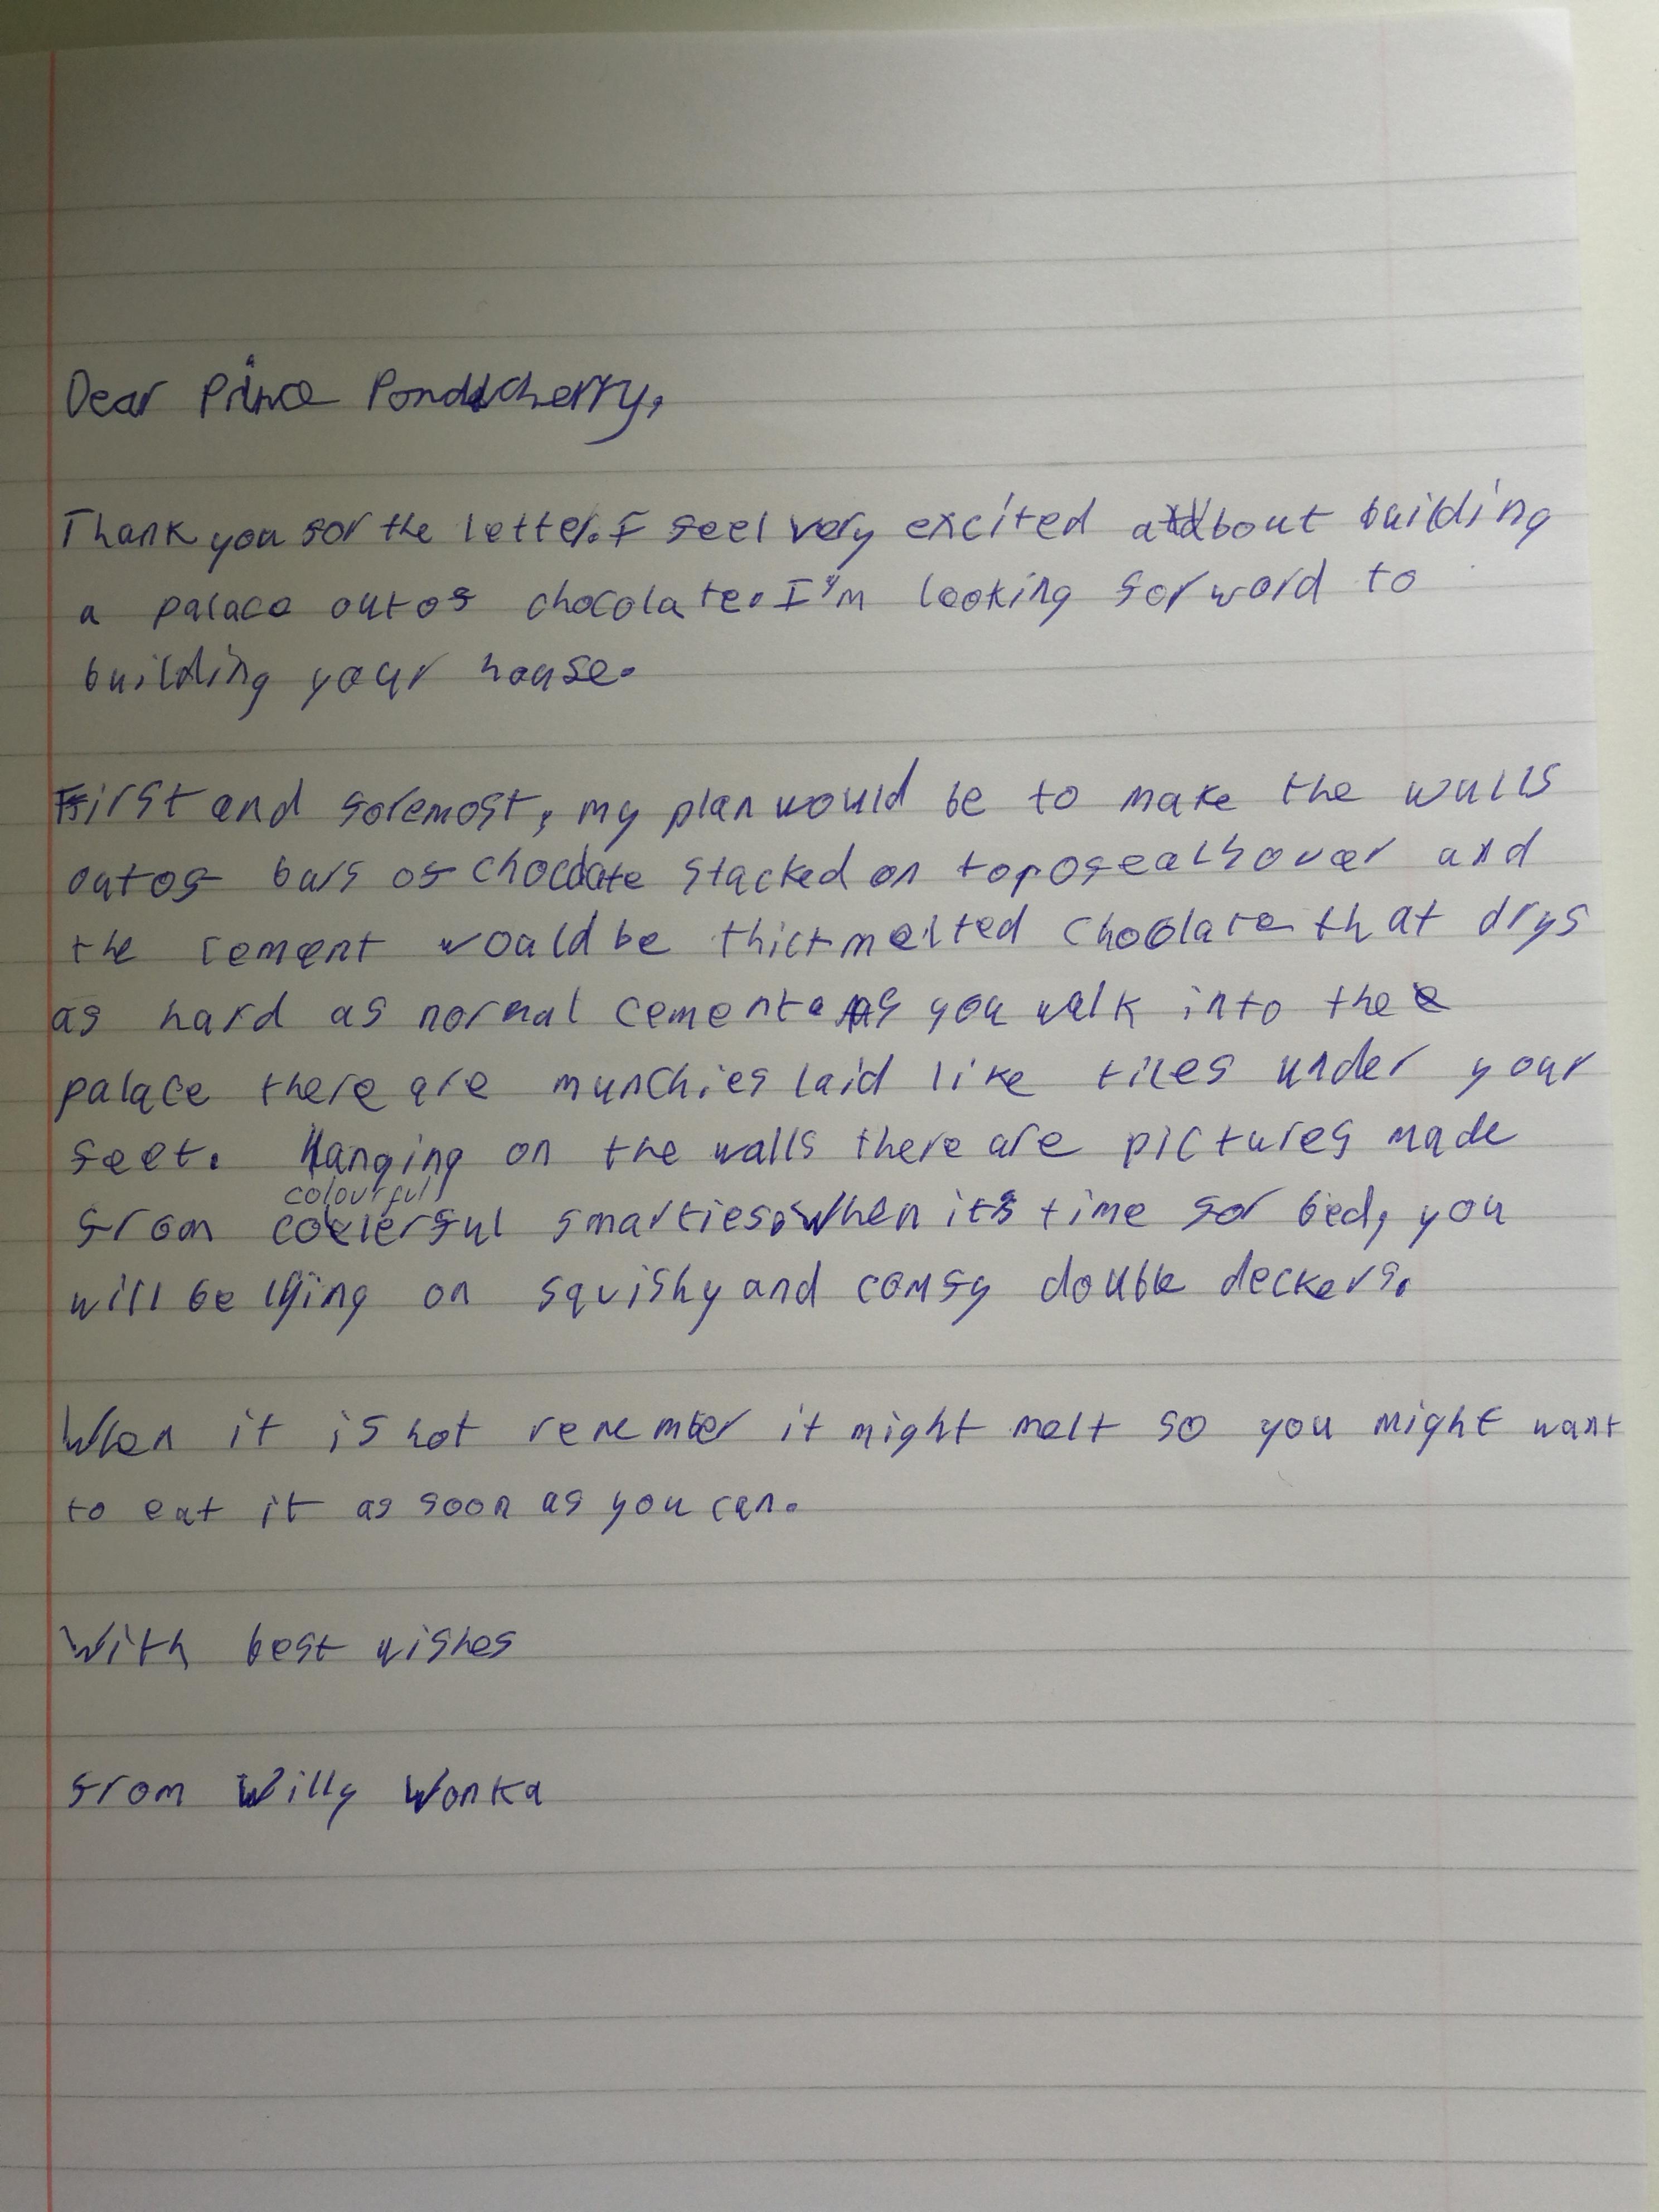 Dear Prince Pondicherry,
Thank you for the letter. I feel very excited about building
a palace out of chocolate. I'm looking forward to
building your house.
First and foremost, my plan would be to make the walls
out of bars of chocolate stacked on top of eachover and
the cement would be thick melted choclate that drys
as hard as normal cement. As you walk into the
palace there are munchies laid like tiles under your
feet. Hanging on the walls there are pictures made
colourful
from colerful smarties. When it's time for bed, you
will be lying on squishy and comfy double deckers.
When it is hot remember it might melt so you might want
to eat it as soon as you can.
With best wishes
from Willy Wonka